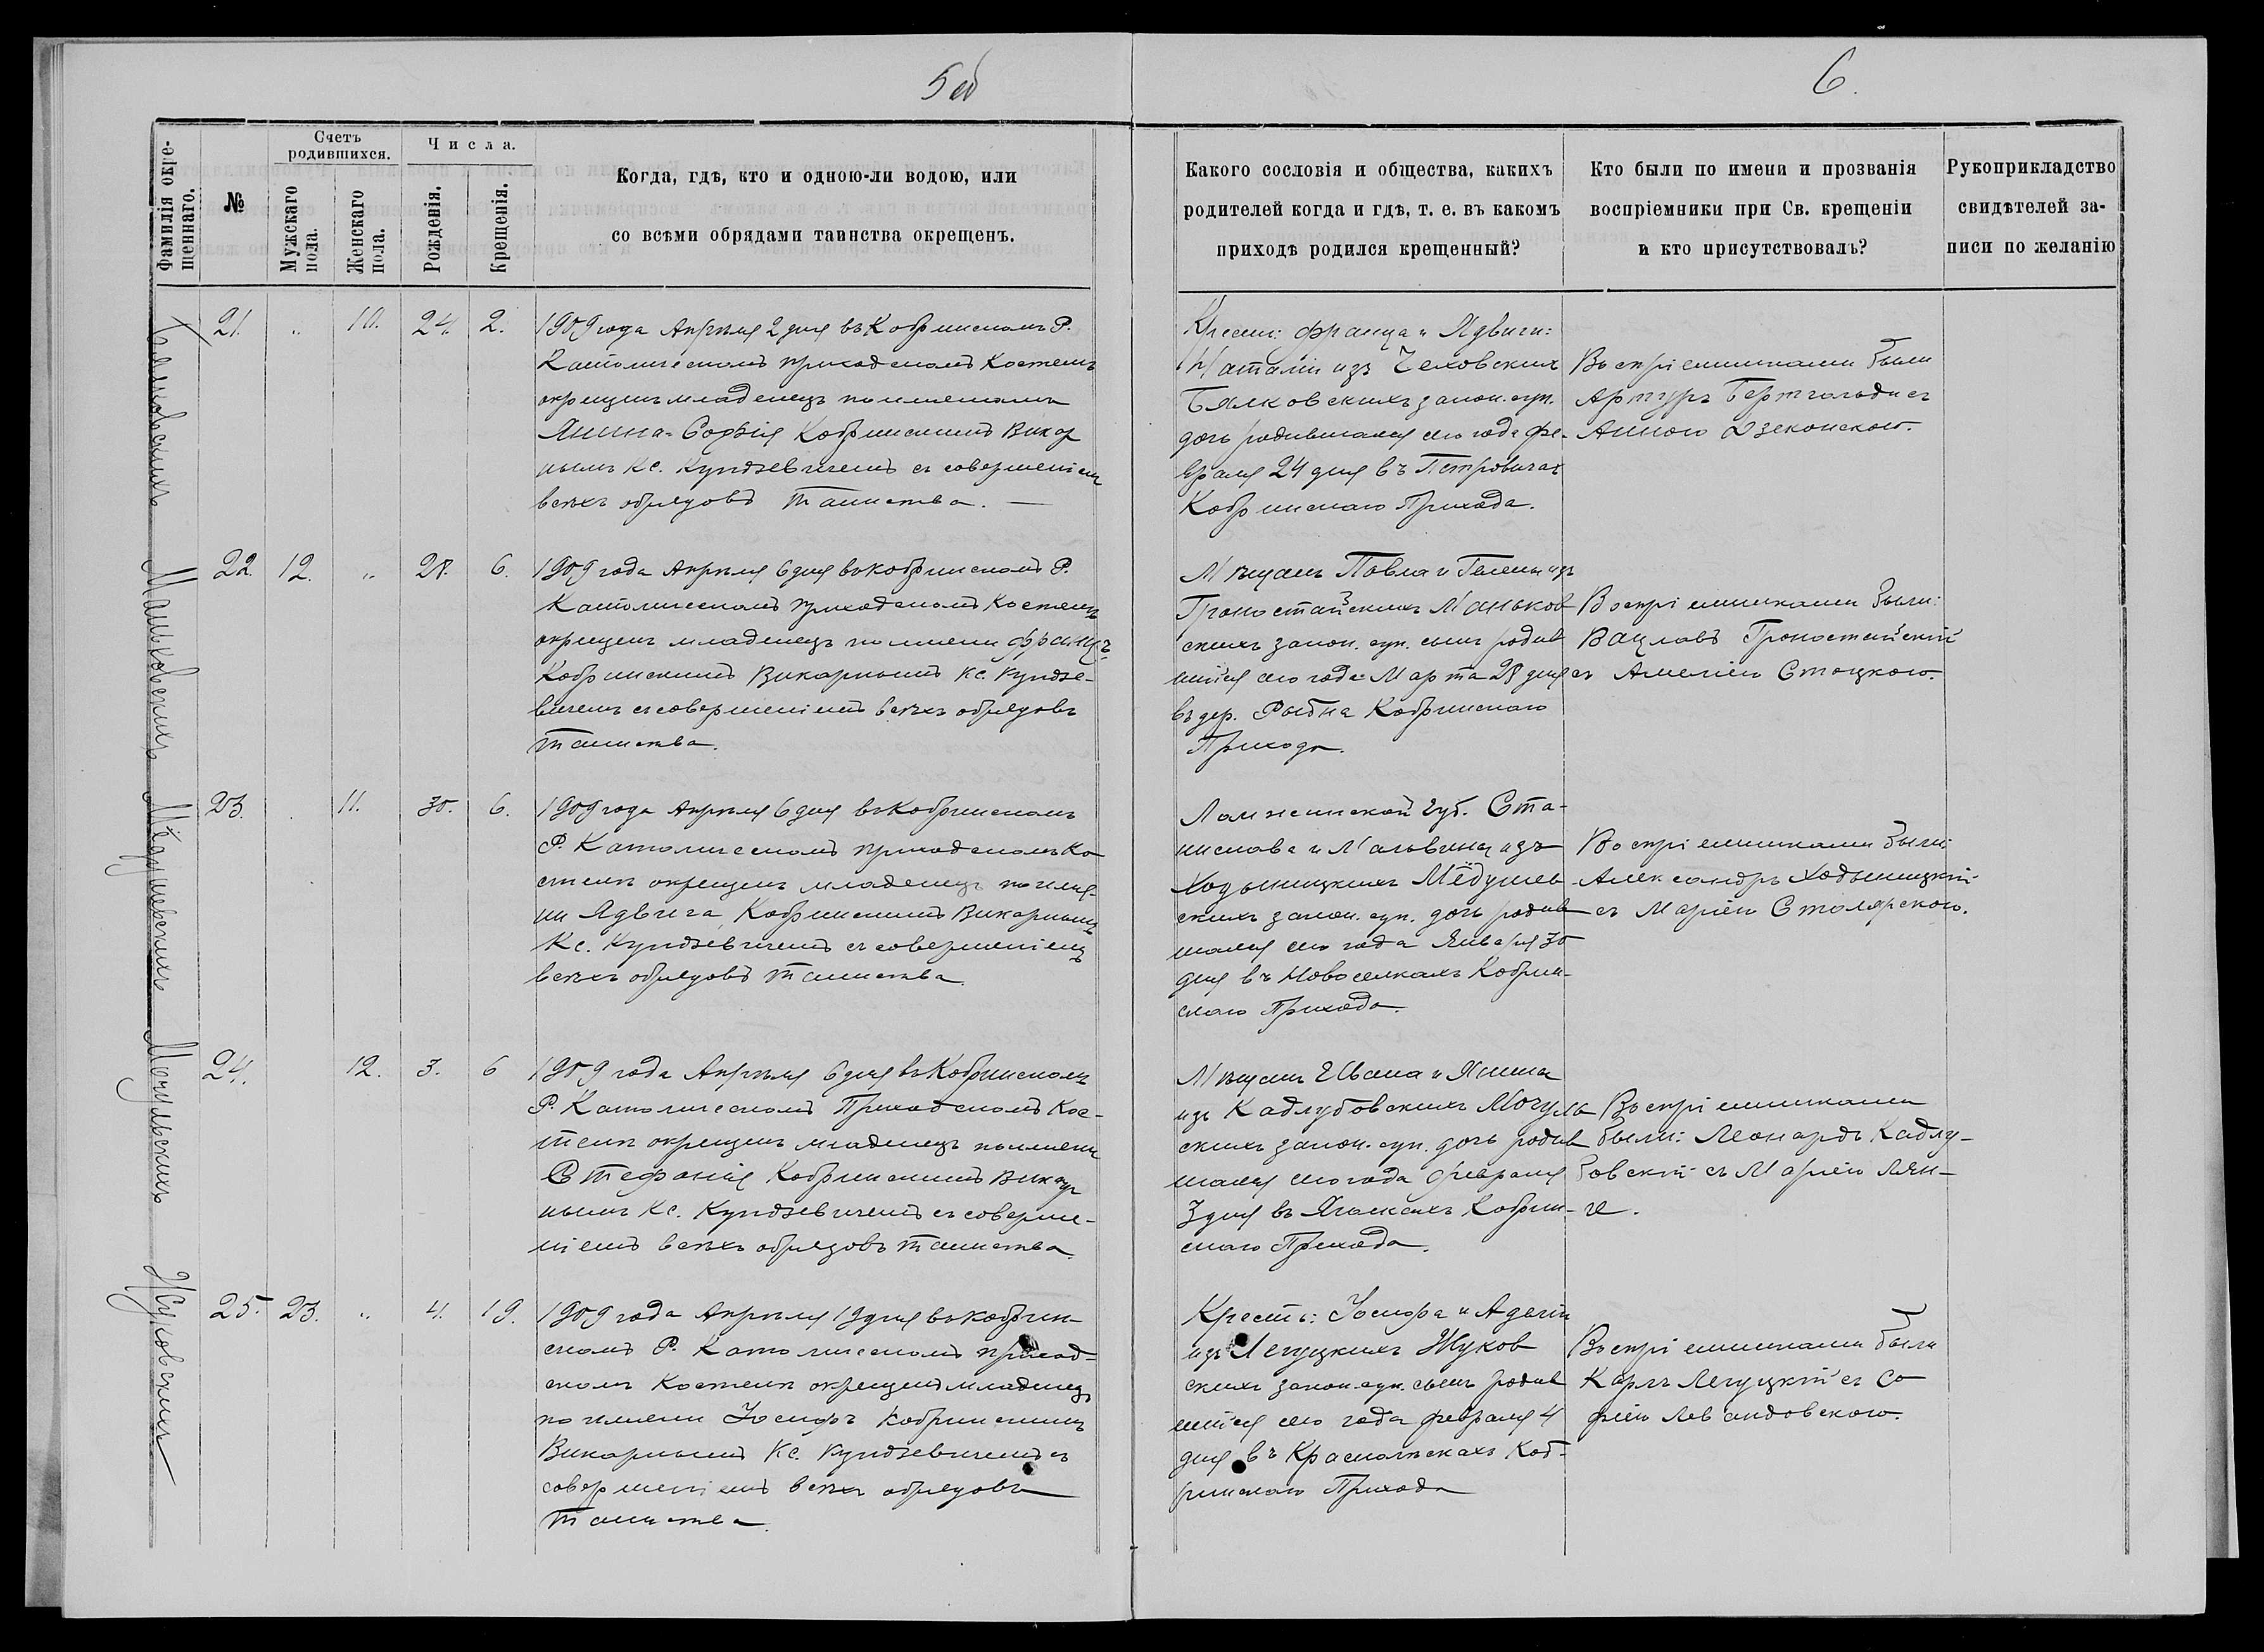 5об
6.
Фамилія окре-
щеннаго.
№
Счетъ
родившихся.
Мужскаго
пола.
Женскаго
пола.
Числа.
Рожденія.
Крещенія.
Когда, гдѣ, кто и одною-ли водою, или
со всѣми обрядами таинства окрещенъ.
Какого сословія и общества, какихъ
родителей когда и гдѣ, т. е. въ какомъ
приходѣ родился крещенный?
Кто были по имени и прозванія
воспріемники при Св. крещеніи
и кто присутствовалъ?
Рукоприкладство
свидѣтелей за-
писи по желанію
Бялковскихъ
21. " 10. 24. 2.
1909 года Апрѣля 2 дня въ Кобринскомъ Р.
Католическомъ приходскомъ Костелѣ
окрещенъ младенецъ по именамъ
Янина-Софія Кобринскимъ Викар
нымъ Кс. Кундзевичемъ съ совершеніемъ
всѣхъ обрядовъ Таинства. —
Крестн: Франца и Ядвиги:
Наталіи изъ Чеховскихъ
Бялковскихъ закон. суп.
дочь родившаяся сего года Фе-
враля 24 дня въ Петровичах
Кобринскаго Прихода.
Воспріемниками были
Артуръ Бертгольди съ
Анною Дзеконскою.
Маньковскихъ
22. 12. " 28. 6.
1909 года Апрѣля 6 дня въ Кобринскомъ Р.
Католическомъ приходскомъ Костелѣ
окрещенъ младенецъ по имени Францъ
Кобринскимъ Викарнымъ Кс. Кундзе-
вичемъ съ совершеніемъ всѣхъ обрядовъ
таинства.
Мѣщанъ Павла и Гелены изъ
Гроностайскихъ Маньков
скихъ закон. суп. сынъ родив
шійся сего года Марта 28 дня
въ дер. Рыбна Кобринскаго
Прихода.
Воспріемниками были:
Вацлавъ Гроностайскій
съ Амеліею Стоцкою.
Мёдушевскихъ
23. 11. 30. 6.
1909 года Апрѣля 6 дня въ Кобринскомъ
Р. Католическомъ приходскомъ Ко
стелѣ окрещенъ младенецъ по име-
ни Ядвига, Кобринскимъ Викарнымъ
Кс. Кундзевичемъ съ совершеніемъ
всѣхъ обрядовъ таинства.
Ломжинской губ. Ста-
нислава и Мальвины изъ
Ходыницкихъ Мёдушев
скихъ закон. суп. дочь родив
шаяся сего года Января 30
дня въ Новоселкахъ Кобрин-
скаго Прихода.
Воспріемниками были:
Александръ Ходыницкій
съ Маріею Столярскою.
Могульскихъ
24. 12. 3. 6
1909 года Апрѣля 6 дня въ Кобринскомъ
Р. Католическомъ Приходскомъ Кос-
телѣ окрещенъ младенецъ по имени
Стефанія Кобринскимъ Викар
нымъ Кс. Кундзевичемъ съ соверше-
ніемъ всѣхъ обрядовъ таинства.
Мѣщанъ Ивана и Янины
изъ Кадлубовскихъ Могуль
скихъ закон. суп. дочь родив
шаяся сего года Февраля
3 дня въ Кобрин-
скаго Прихода.
Воспріемниками
были: Леонардъ Кадлу-
бовскій съ Маріею Лян-
ге.
Жуковскихъ
25. 13. " 4. 19.
1909 года Апрѣля 19 дня въ Кобрин-
скомъ Р. Католическомъ приход-
скомъ Костелѣ окрещенъ младенецъ
по имени Іосифъ Кобринскимъ
Викарнымъ Кс. Кундзевичемъ съ
совершеніемъ всѣхъ обрядовъ
таинства.
Крестъ: Іосифа и Адели
изъ Легуцкихъ Жуков
скихъ закон. суп. сынъ родив
шійся сего года Февраля 4
дня въ Коб-
ринскаго Прихода
Воспріемниками были
Карлъ Легуцкій съ Со
фіею Левандовскою.